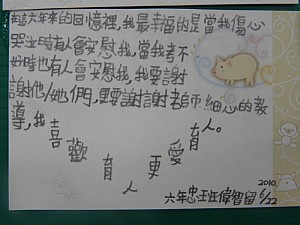 在這六年來的回憶裡，我最幸福的是當我傷心
哭泣時有人會安慰我，當我考不
好時也有人會安慰我，我要謝
謝他/她們，還要謝謝老師細心的教
導，我喜歡育人更愛育人。
2010
六年忠王任偉智留 6/22